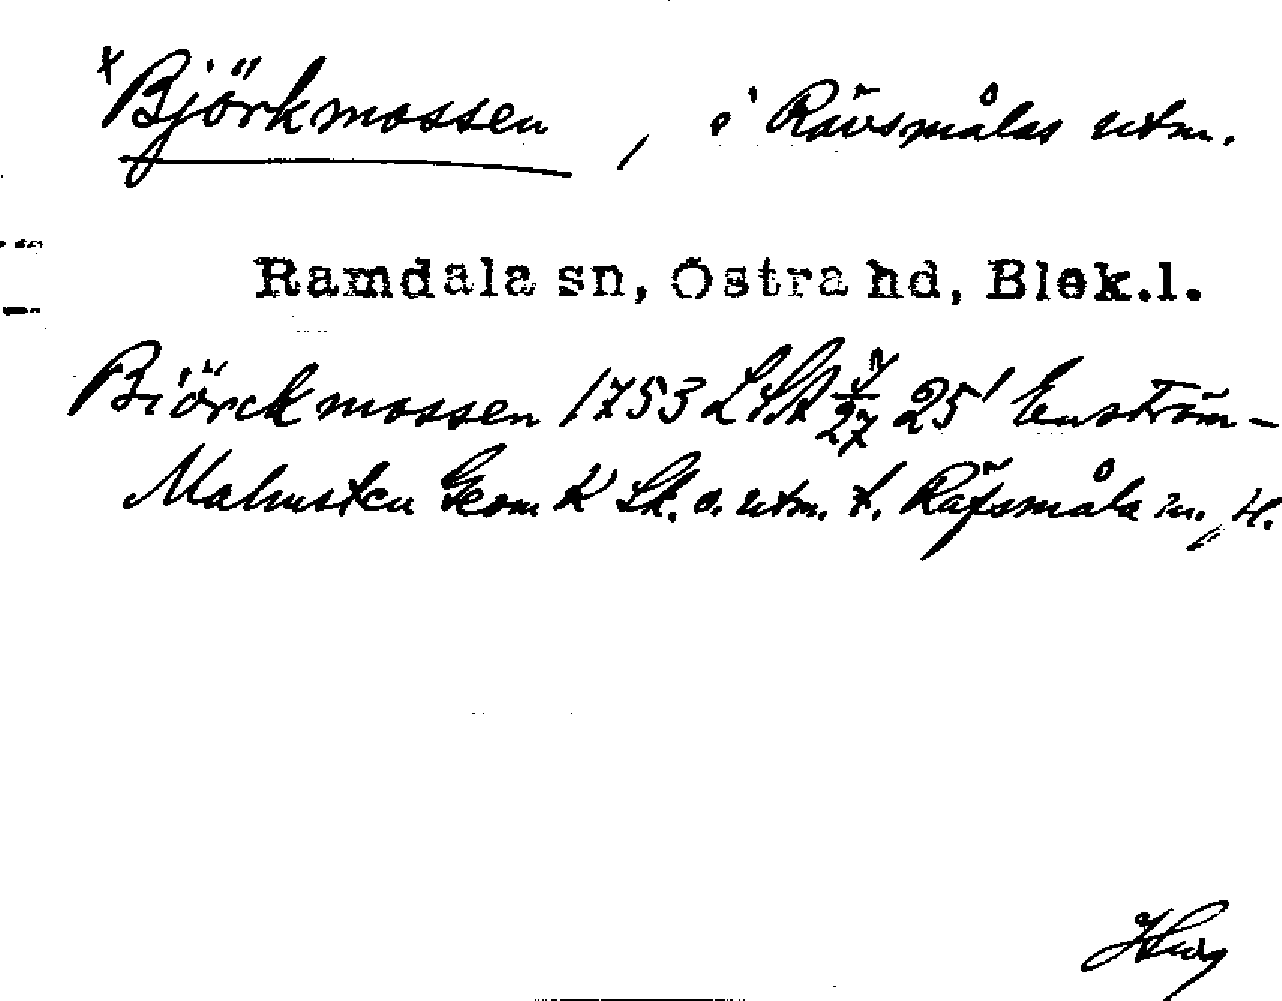 x Björkmossen, i Rävsmålas utm.
Ramdala sn, Östra hd, Blek.l.
Biörckmossen 1753 LSA 25 Enström-
Malmsten Geom K Sk. o. utm. t. Räfsmåla n. 4.